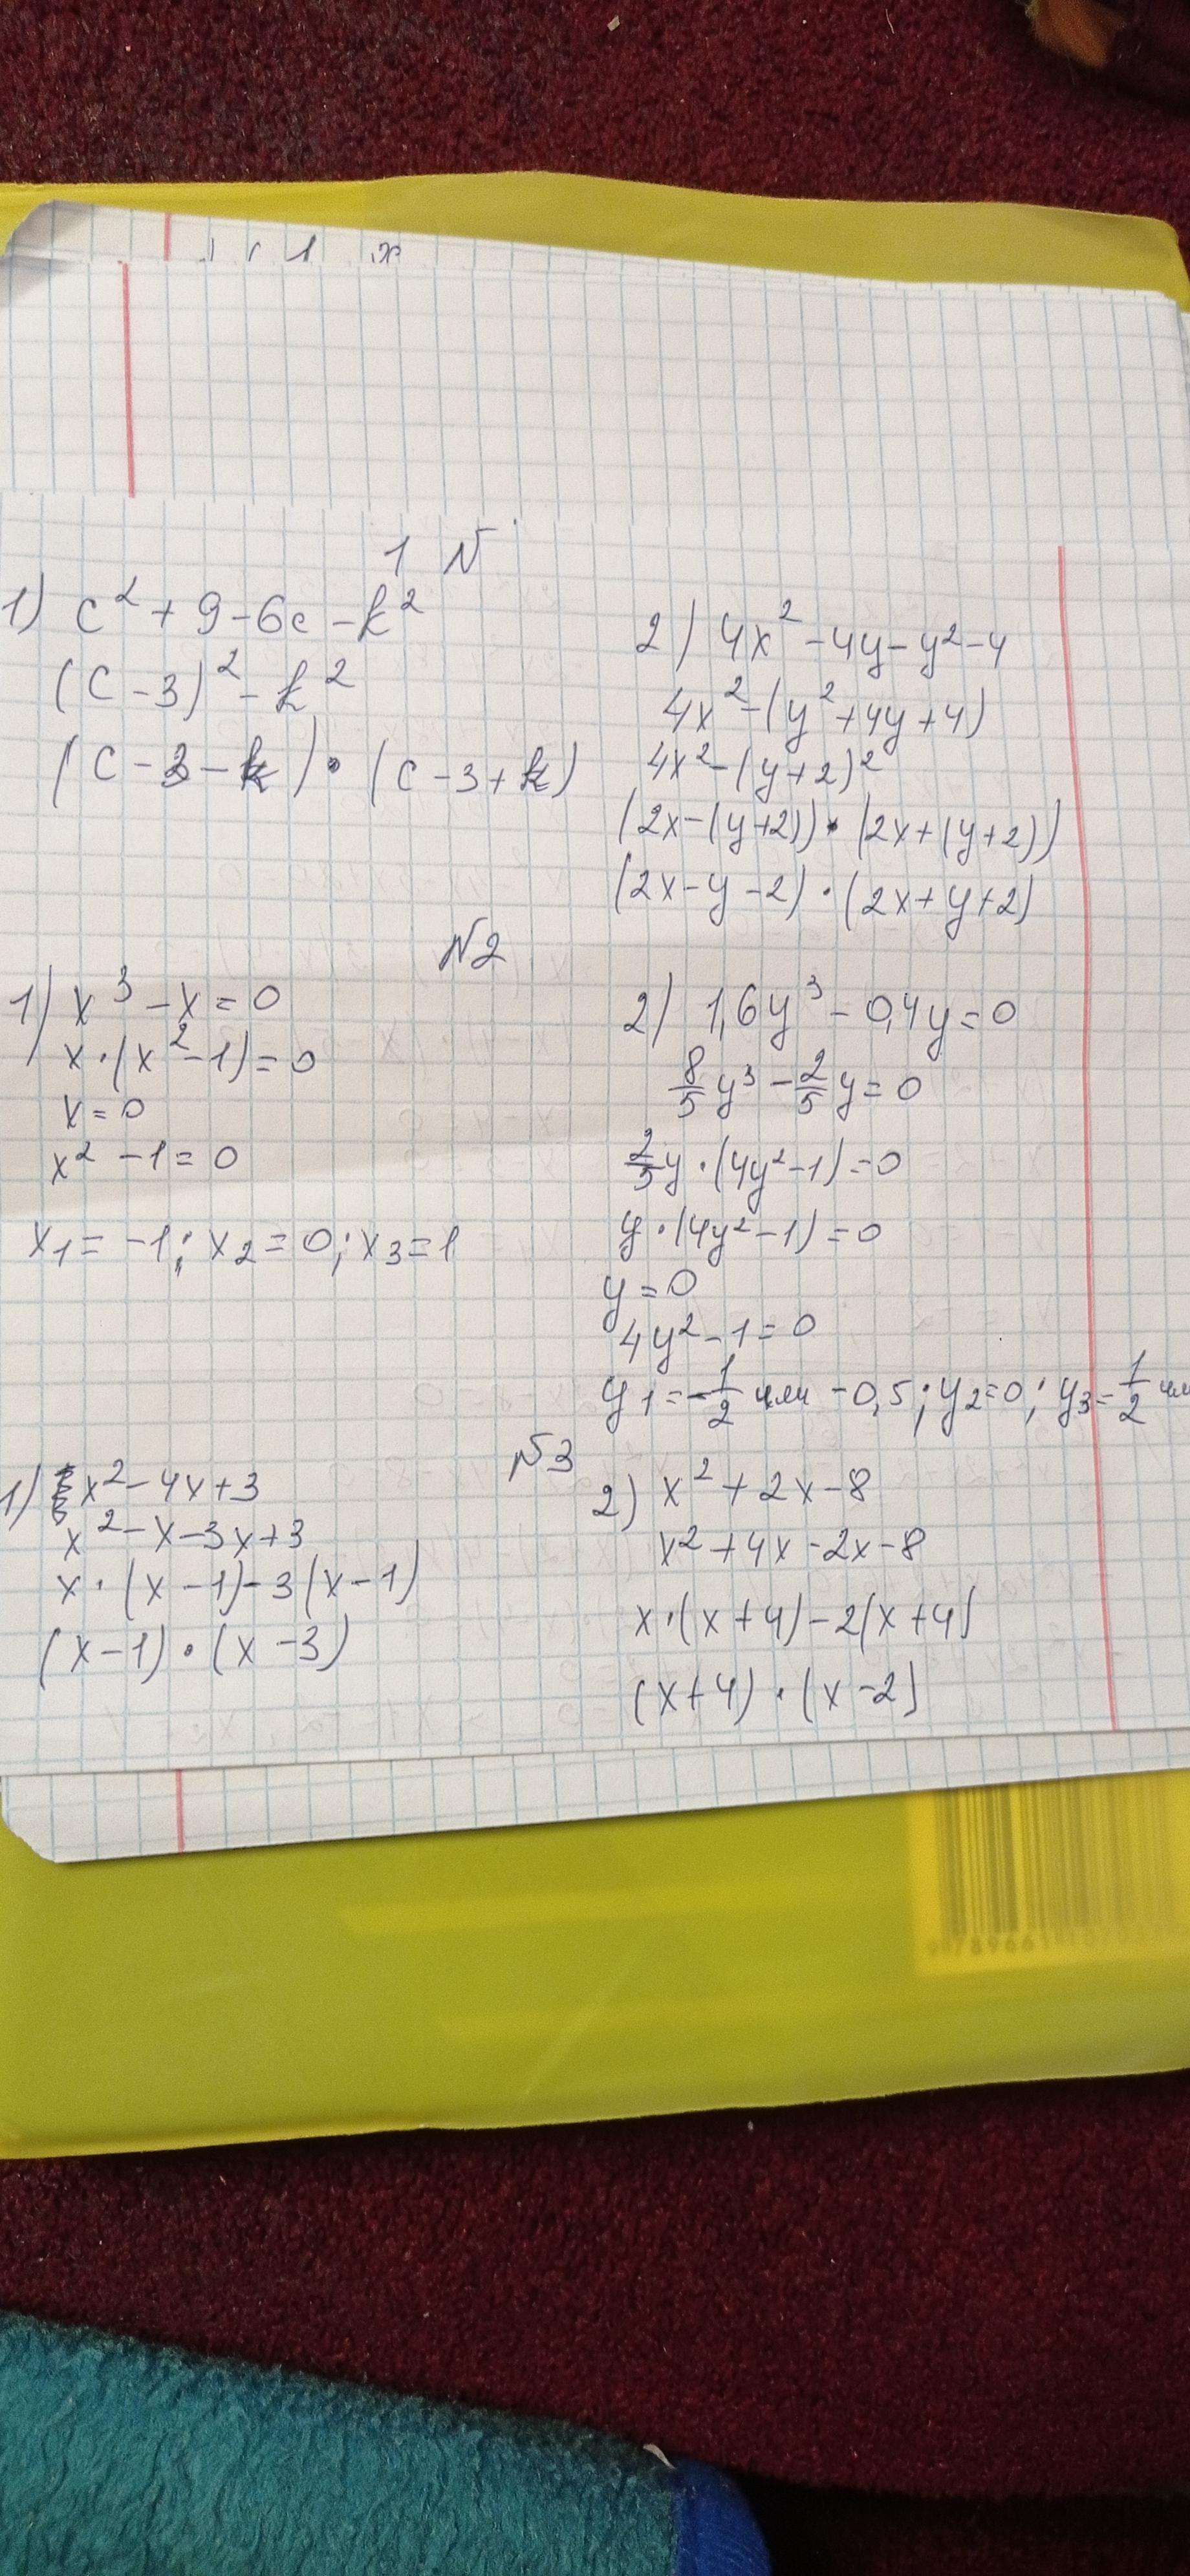 1 N
1) c² + 9 - 6c - k²
(c - 3)² - k²
(c - 3 - k) · (c - 3 + k)
2) 4x² - 4y - y² - 4
4x² - (y² + 4y + 4)
4x² - (y + 2)²
(2x - (y + 2)) · (2x + (y + 2))
(2x - y - 2) · (2x + y + 2)
N2
1) x³ - x = 0
x · (x² - 1) = 0
x = 0
x² - 1 = 0
x1 = -1; x2 = 0; x3 = 1
2) 1,6y³ - 0,4y = 0
8/5 y³ - 2/5 y = 0
2/5 y · (4y² - 1) = 0
y · (4y² - 1) = 0
y = 0
4y² - 1 = 0
y1 = -1/2 или -0,5; y2 = 0; y3 = 1/2
N3
1) x² - 4x + 3
x² - x - 3x + 3
x · (x - 1) - 3(x - 1)
(x - 1) · (x - 3)
2) x² + 2x - 8
x² + 4x - 2x - 8
x · (x + 4) - 2(x + 4)
(x + 4) · (x - 2)